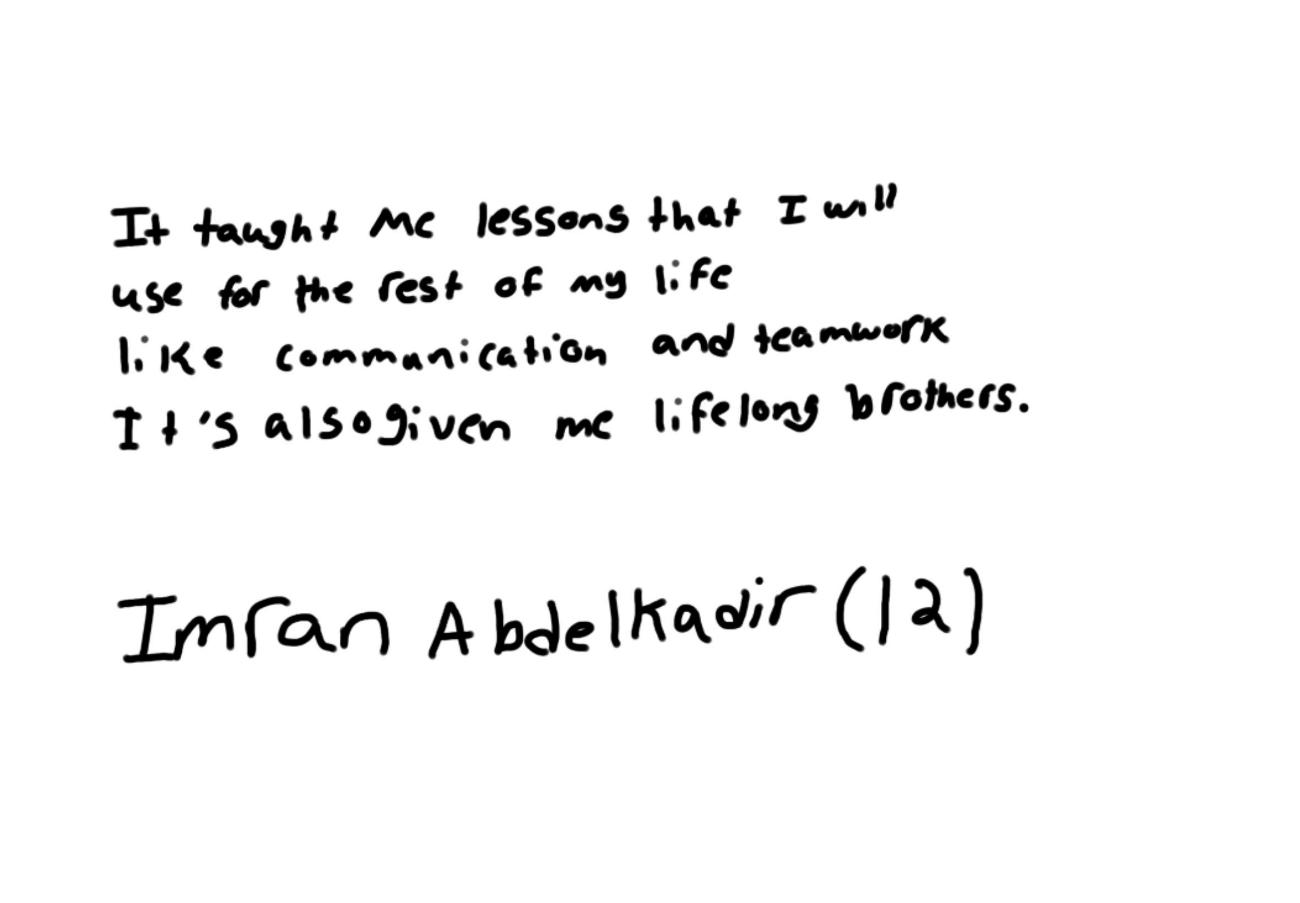 It taught me lessons that I will
use for the rest of my life
like communication and teamwork
It's also given me lifelong brothers.
Imran Abdelkadir (12)